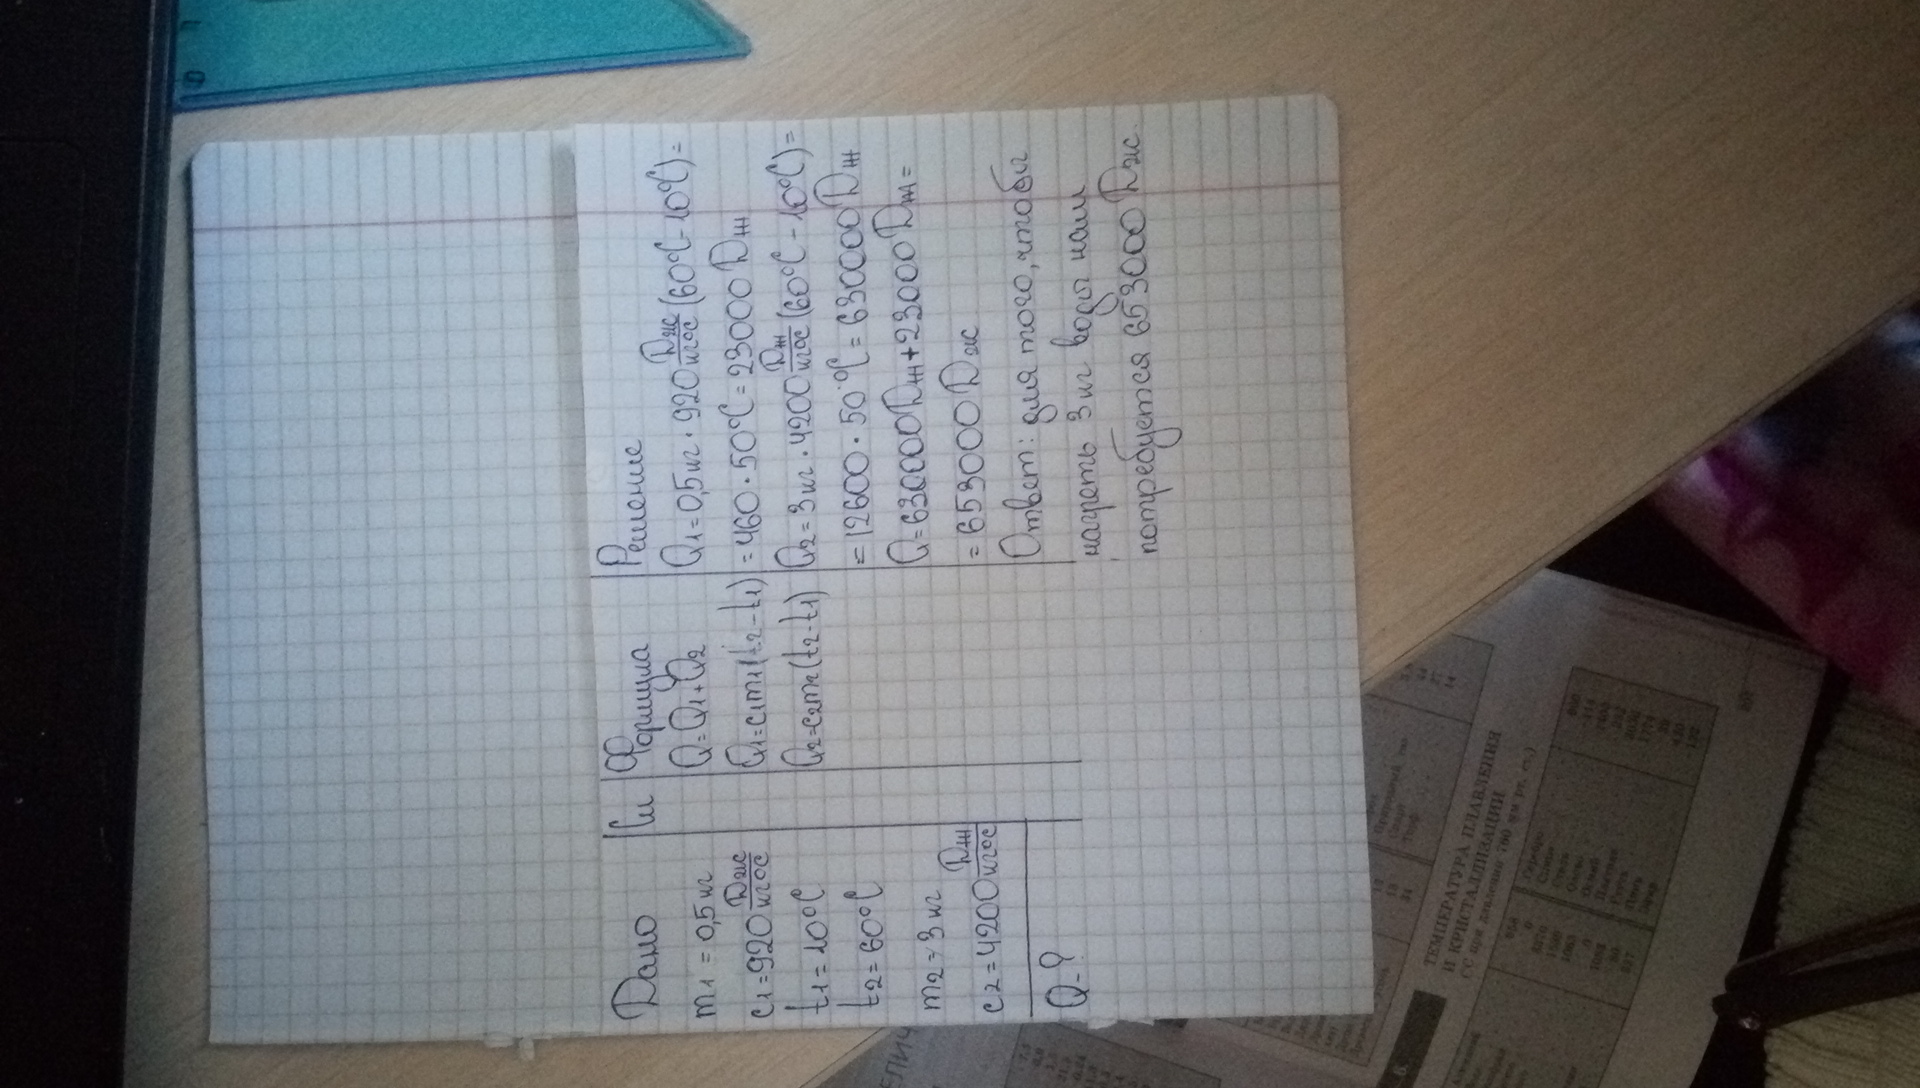 Дано
m1 = 0,5 кг
c1 = 920 Дж/кг°C
t1 = 10°C
t2 = 60°C
m2 = 3 кг
c2 = 4200 Дж/кг°C
Q-?
Си
Формула
Q = Q1 + Q2
Q1 = c1m1(t2 - t1)
Q2 = c2m2(t2 - t1)
Решение
Q1 = 0,5 кг · 920 Дж/кг°C (60°C - 10°C) =
= 460 · 50°C = 23000 Дж
Q2 = 3 кг · 4200 Дж/кг°C (60°C - 10°C) =
= 12600 · 50°C = 630000 Дж
Q = 630000 Дж + 23000 Дж =
= 653000 Дж
Ответ: для того, чтобы
нагреть 3 кг воды нам
потребуется 653000 Дж.
ТЕМПЕРАТУРА ПЛАВЛЕНИЯ
И КРИСТАЛЛИЗАЦИИ